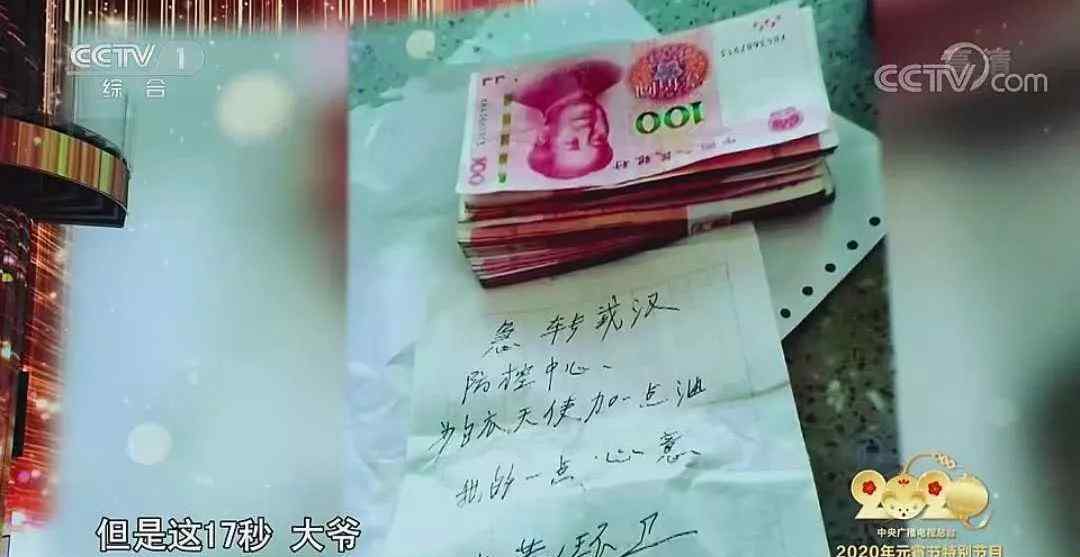 CCTV 1
综合
CCTV.com
高清
100
100
急 转武汉
防控中心、
为白衣天使加一点油
我的一点心意
环卫
但是这17秒 大爷
2020
中央广播电视总台
2020年元宵节特别节目